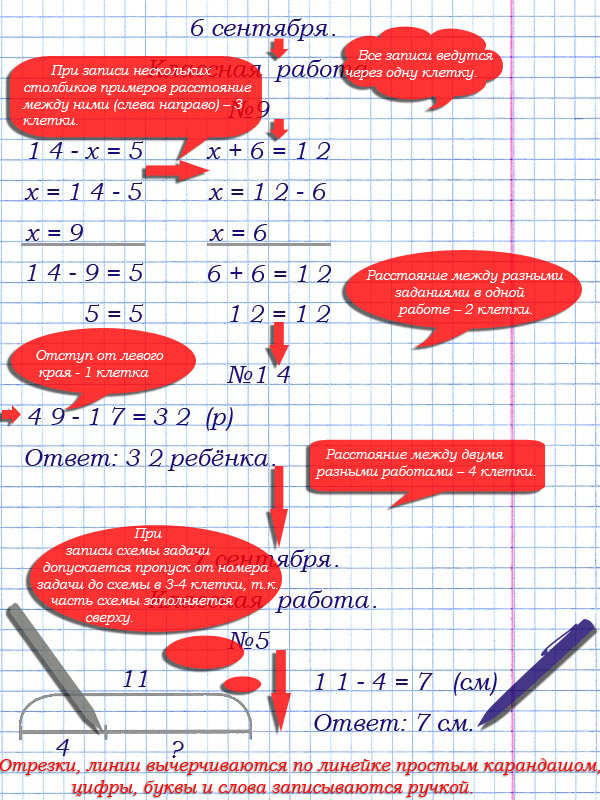 6 сентября.
Классная работа
Все записи ведутся
через одну клетку.
При записи нескольких
столбиков примеров расстояние
между ними (слева направо) – 3
клетки.
№9
1 4 - х = 5 х + 6 = 1 2
х = 1 4 - 5 х = 1 2 - 6
х = 9 х = 6
1 4 - 9 = 5 6 + 6 = 1 2
5 = 5 1 2 = 1 2
Расстояние между разными
заданиями в одной
работе – 2 клетки.
Отступ от левого
края - 1 клетка
№1 4
4 9 - 1 7 = 3 2 (р)
Ответ: 3 2 ребёнка.
Расстояние между двумя
разными работами – 4 клетки.
При
записи схемы задачи
допускается пропуск от номера
задачи до схемы в 3-4 клетки, т.к.
часть схемы заполняется
сверху.
7 сентября.
Классная работа.
№5
11
4 ?
1 1 - 4 = 7 (см)
Ответ: 7 см.
Отрезки, линии вычерчиваются по линейке простым карандашом,
цифры, буквы и слова записываются ручкой.